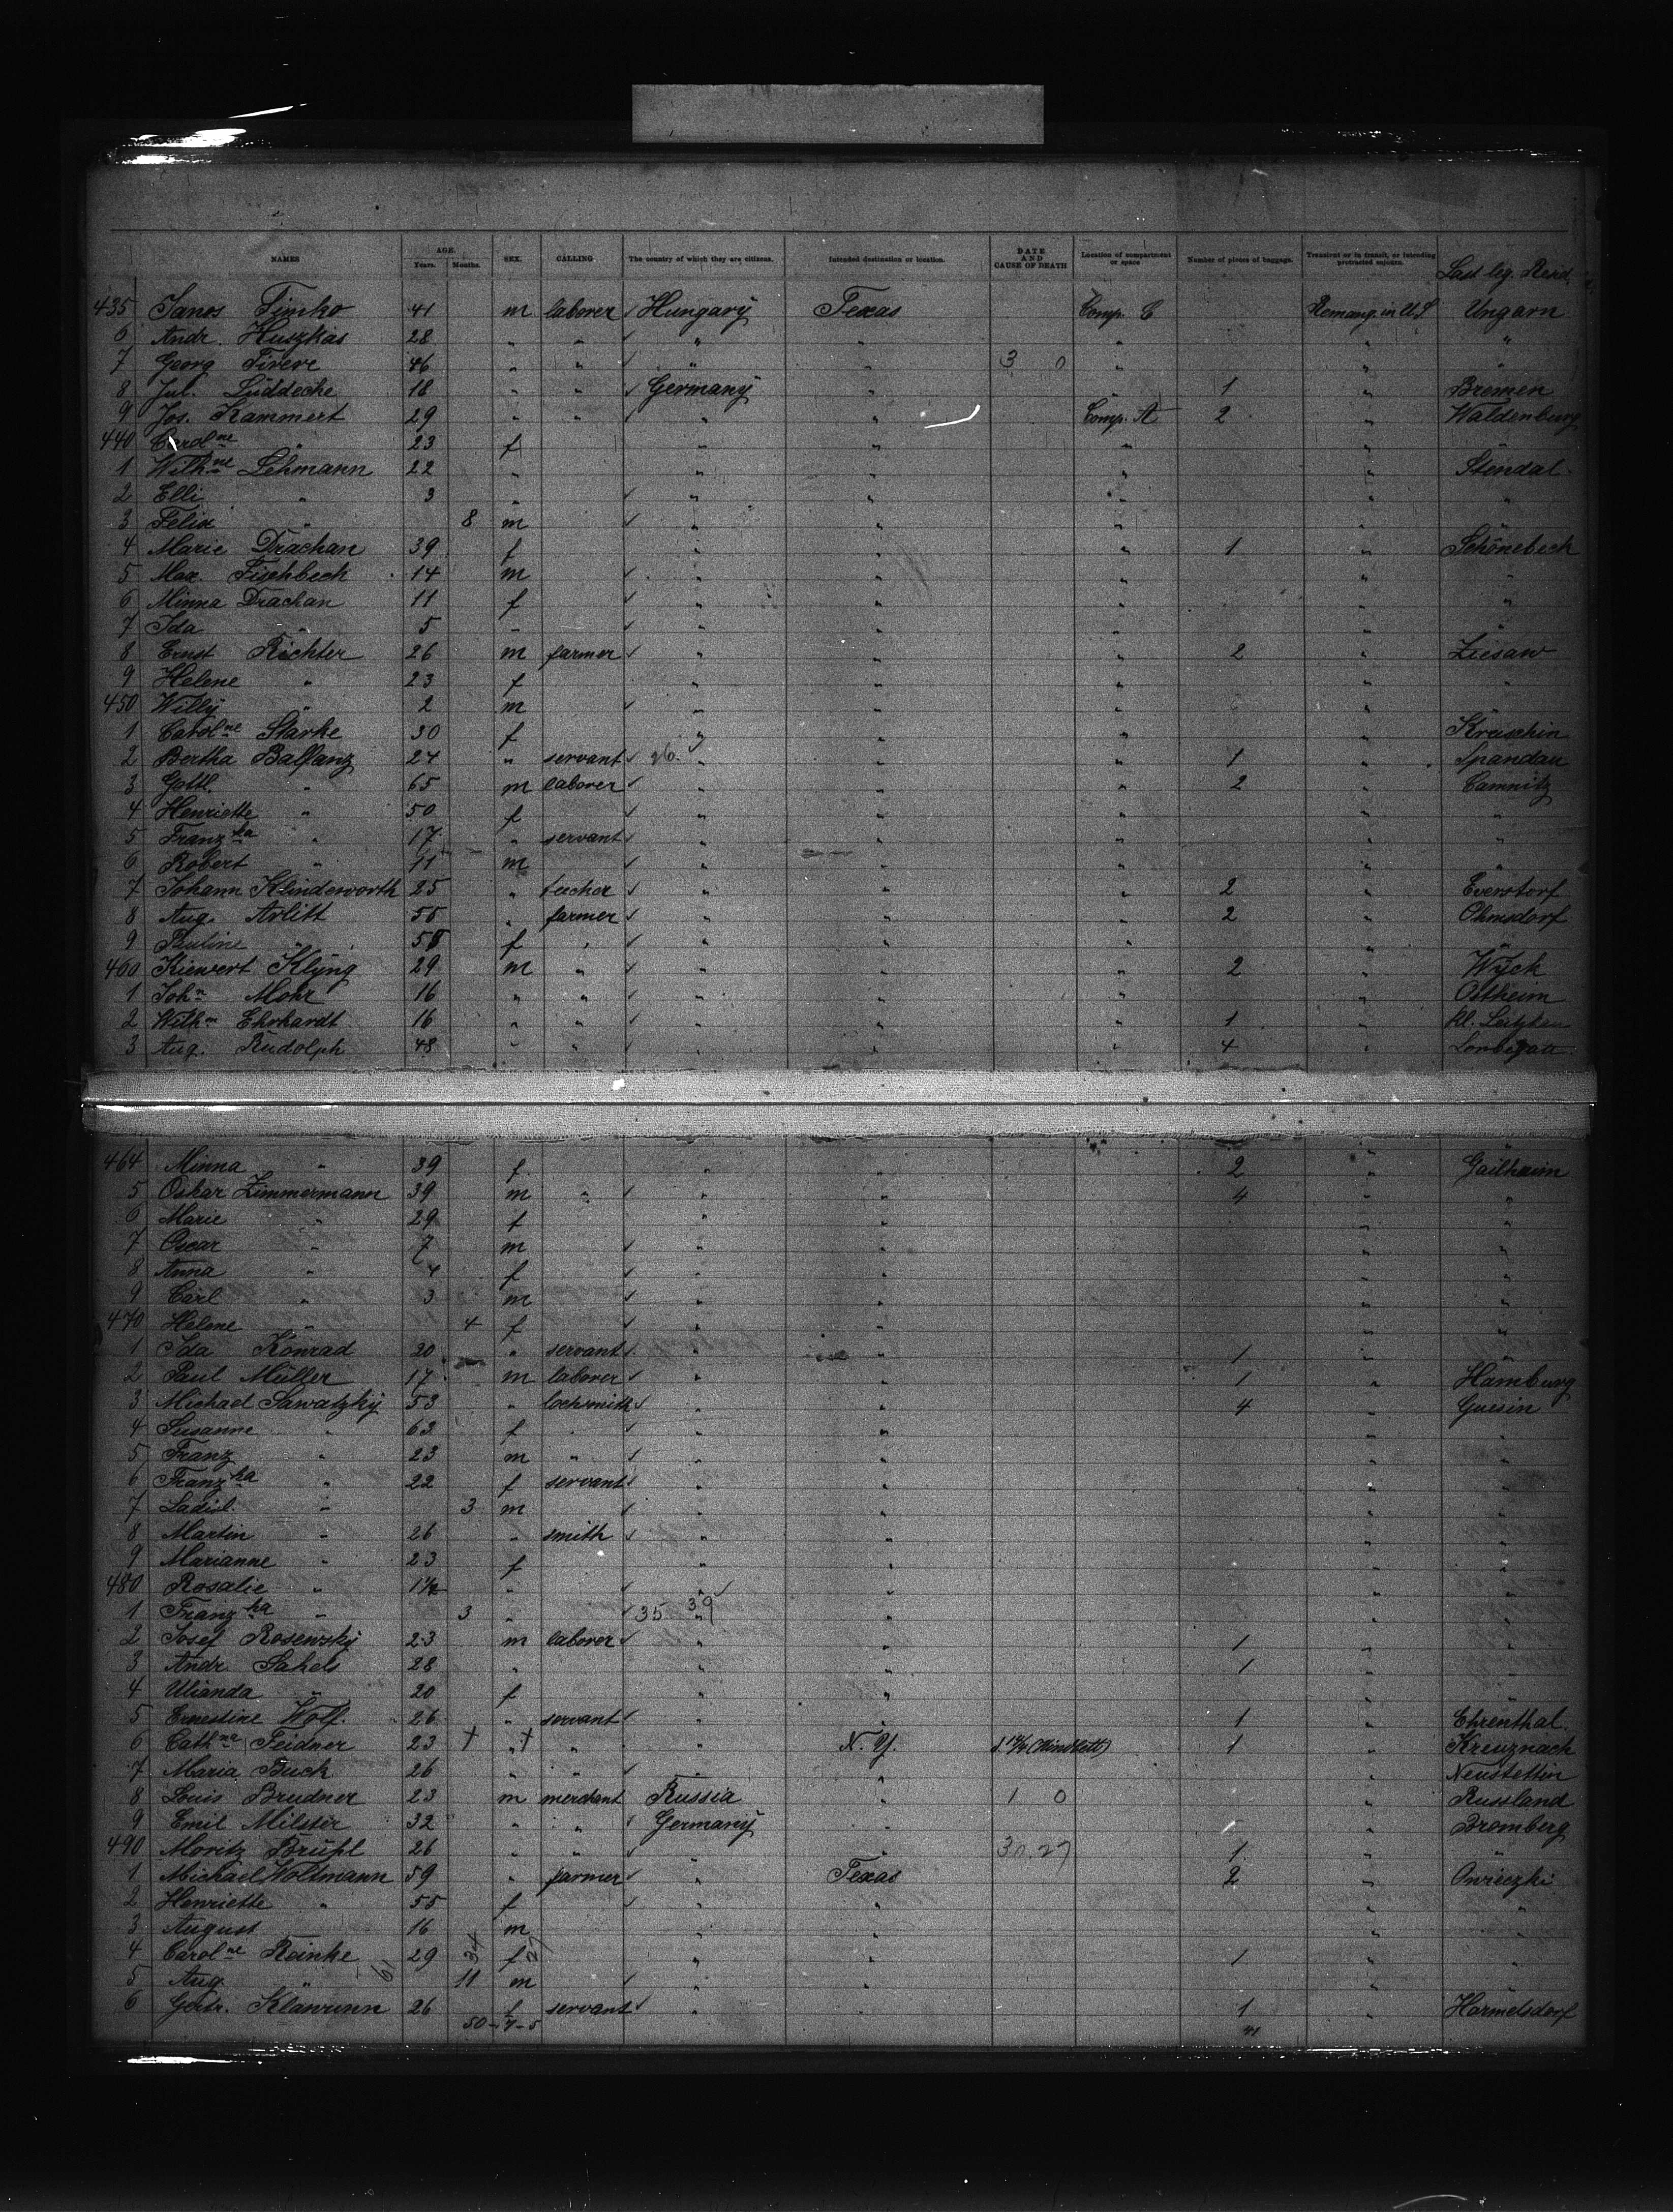 NAMES AGE. Years. Months. SEX. CALLING The country of which they are citizens. Intended destination or location. DATE AND CAUSE OF DEATH Location of compartment or space Number of pieces of baggage. Transient or in transit, or intending protracted sojourn. Last leg. Resid.
435 Janos Timko 41 m laborer Hungary Texas Comp. C Remang. in U.S Ungarn
6 Andr. Huszkas 28 " " " " " " "
7 Georg 46 " " " " 3 0 " " "
8 Jul. Lüddecke 18 " " Germany " " 1 " Bremen
9 Jos. Kammert 29 " " " " Comp. A 2 " Waldenburg
440 Carolne " 23 f " " " " "
1 Wilhne Lehmann 22 " " " " " Stendal
2 Elli " 3 " " " " " "
3 Felix " 8 m " " " " "
4 Marie Drachan 39 f " " " 1 " Schönebeck
5 Max. Fischbeck 14 m " " " " "
6 Minna Drachan 11 f " " " " "
7 Ida " 5 " " " " " "
8 Ernst Richter 26 m farmer " " " 2 " Ziesaw
9 Helene " 23 f " " " " "
450 Willy " 2 m " " " " "
1 Carolne Starke 30 f " " " " Kräschin
2 Bertha Balfanz 24 " servant 26. " " " 1 " Spandau
3 Gottl. " 65 m laborer " " " 2 " Camnitz
4 Henriette " 50 f " " " " "
5 Franzka " 17 " servant " " " " "
6 Robert " 11 m " " " " "
7 Johann Klindeworth 25 " teacher " " " 2 " Everstorf
8 Aug. Arlitt 55 " farmer " " " 2 " Ohmsdorf
9 Pauline " 58 f " " " " " "
460 Kiewert Klyng 29 m " " " " 2 " Wyck
1 John Mohr 16 " " " " " " Ostheim
2 Wilhm Ehrhardt 16 " " " " " 1 " Kl. Leitzkau
3 Aug. Rudolph 48 " " " " " 4 "
464 Minna " 39 f " " 2 " Gailhaim
5 Oskar Zimmermann 39 m " " " 4 " "
6 Marie " 29 f " " " "
7 Oscar " 7 m " " " "
8 Anna " 4 f " " " "
9 Carl " 3 m " " " "
470 Helene " 4 f " " " "
1 Ida Konrad 20 " servant " " 1 " "
2 Paul Müller 17 m laborer " " 1 " Hamburg
3 Michael Sawatzky 53 " locksmith " " 4 " Gnesin
4 Susanne " 63 f " " " " "
5 Franz " 23 m " " " " "
6 Franzka " 22 f servant " " " "
7 Ladisl. " 3 m " " " "
8 Martin " 26 " smith " " " "
9 Marianne " 23 f " " " "
480 Rosalie " 1½ " " " " "
1 Franzka " 3 " 35 39 " " " "
2 Josef Rosewsky 23 m laborer " " 1 " "
3 Andr. Sakels 28 " " " 1 " "
4 Ulianda " 20 f " " " "
5 Ernestine Wolf. 26 " servant " " 1 " Ehrenthal
6 Cathna Feidner 23 " " " N. Y. 1 " Kreuznach
7 Maria Buck 26 " " " " " Neustettin
8 Louis Brudner 23 m merchant Russia " 1 0 " Russland
9 Emil Milster 32 " " Germany " " Bromberg
490 Moritz Brühl 26 " " " " 30.27 1 " "
1 Michael Woltmann 59 " farmer " Texas 2 " Owieczki
2 Henriette " 55 f " " " "
3 August " 16 m " " " "
4 Carolne Reinke 29 34 f 27 " " 1 " "
5 Aug. " 61 11 m " " " "
6 Gertr. Klawunn 26 f servant " " 1 " Harmelsdorf
50-7-5 41